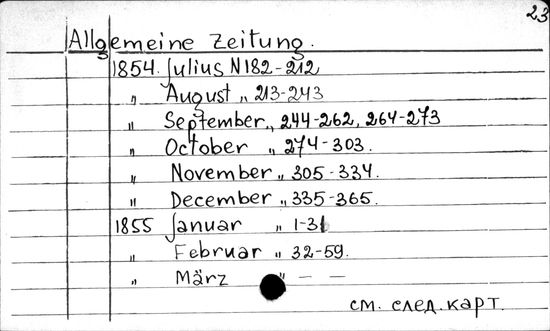 23
Allgemeine Zeitung.
1854. Julius N 182-212
„ August „ 213-243
„ September „ 244-262, 264-273
„ October „ 274-303.
„ November „ 305-334.
„ December „ 335-365.
1855 Januar „ 1-31
„ Februar „ 32-59.
„ März „ — —
см. след. карт.